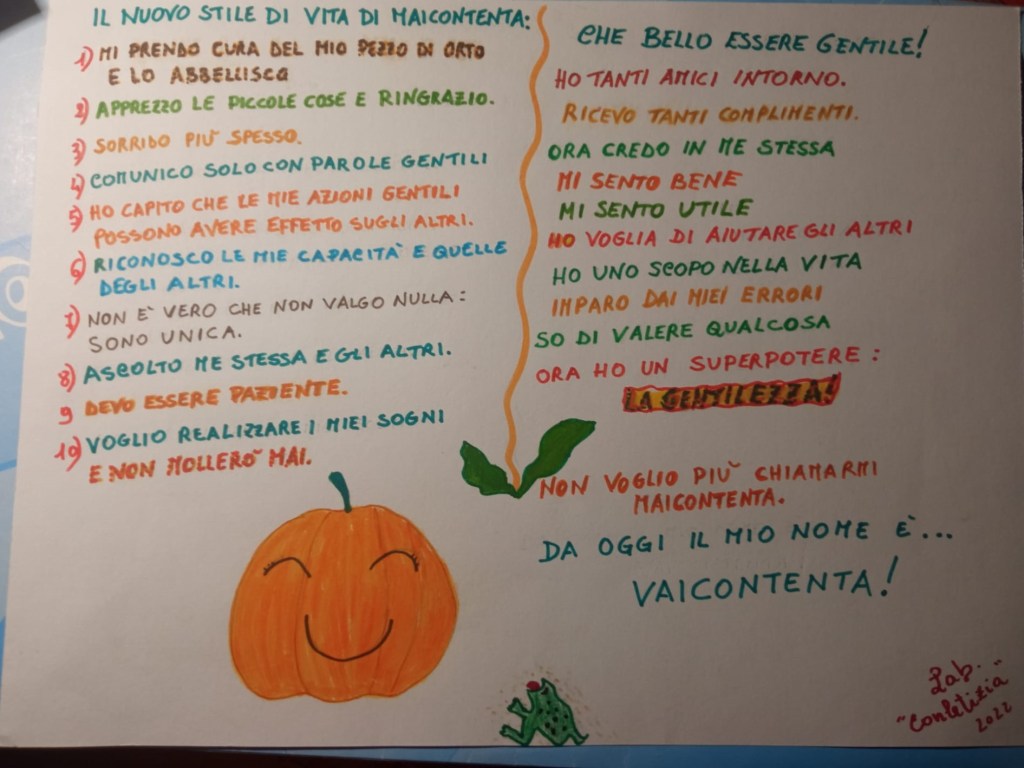 IL NUOVO STILE DI VITA DI MAICONTENTA:
1) MI PRENDO CURA DEL MIO PEZZO DI ORTO
E LO ABBELLISCO
2) APPREZZO LE PICCOLE COSE E RINGRAZIO.
3) SORRIDO PIÙ SPESSO.
4) COMUNICO SOLO CON PAROLE GENTILI
5) HO CAPITO CHE LE MIE AZIONI GENTILI
POSSONO AVERE EFFETTO SUGLI ALTRI.
6) RICONOSCO LE MIE CAPACITÀ E QUELLE
DEGLI ALTRI.
7) NON È VERO CHE NON VALGO NULLA:
SONO UNICA.
8) ASCOLTO ME STESSA E GLI ALTRI.
9 DEVO ESSERE PAZIENTE.
10) VOGLIO REALIZZARE I MIEI SOGNI
E NON MOLLERÒ MAI.
CHE BELLO ESSERE GENTILE!
HO TANTI AMICI INTORNO.
RICEVO TANTI COMPLIMENTI.
ORA CREDO IN ME STESSA
MI SENTO BENE
MI SENTO UTILE
HO VOGLIA DI AIUTARE GLI ALTRI
HO UNO SCOPO NELLA VITA
IMPARO DAI MIEI ERRORI
SO DI VALERE QUALCOSA
ORA HO UN SUPERPOTERE:
LA GENTILEZZA!
NON VOGLIO PIÙ CHIAMARMI
MAICONTENTA.
DA OGGI IL MIO NOME È...
VAICONTENTA!
Lab.
"Conletizia"
2022